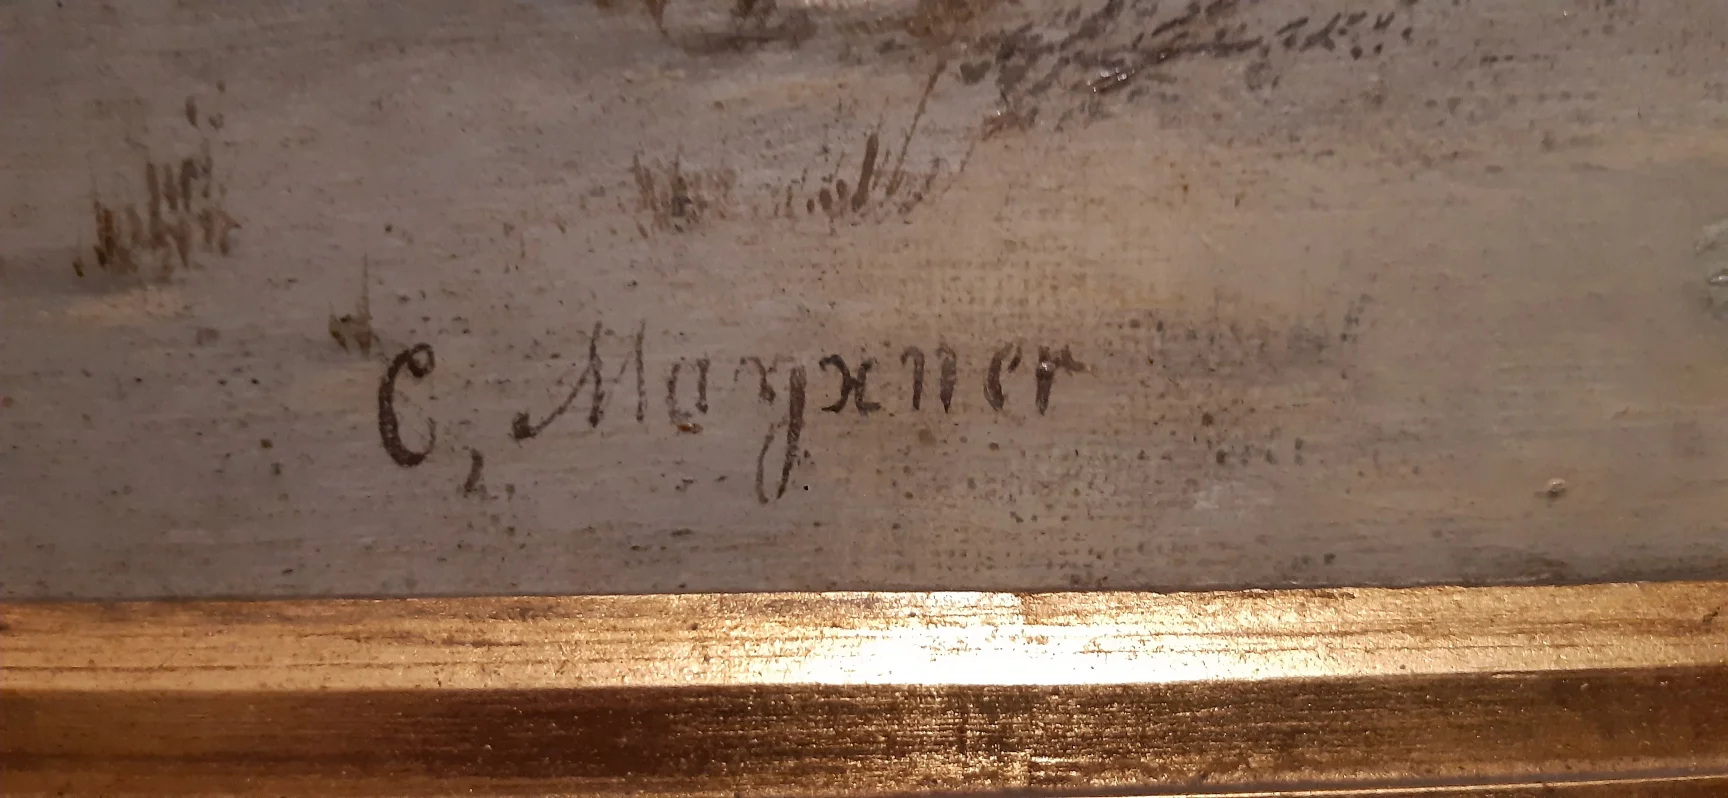 C, Mayxner